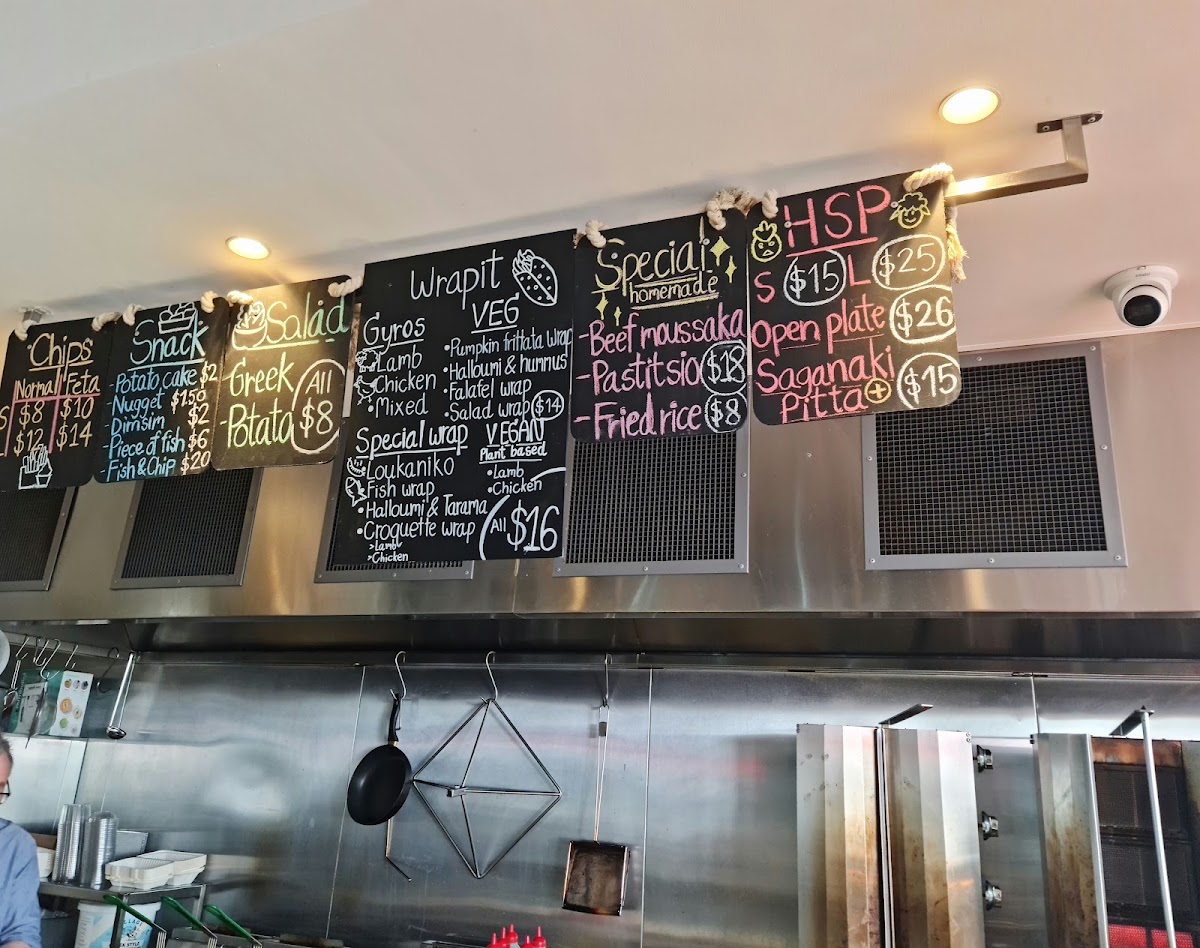 Chips
Normal Feta
S $8 $10
$12 $14
Snack
-Potato cake $2
-Nugget $1.50
-Dimsim $2
-Piece of fish $6
-Fish & Chip $20
Salad
-Greek
-Potato
All
$8
Wrapit
Gyros
Lamb
Chicken
•Mixed
Special wrap
Loukaniko
Fish wrap
•Halloumi & Tarama
•Croquette wrap
>Lamb
>Chicken
VEG
•Pumpkin frittata wrap
•Halloumi & hummus
•Falafel wrap
•Salad wrap $14
VEGAN
Plant based
•Lamb
•Chicken
All $16
Special
homemade
-Beef moussaka
-Pastitsio $18
-Fried rice $8
HSP
S $15 L $25
Open plate $26
Saganaki
Pitta + $15